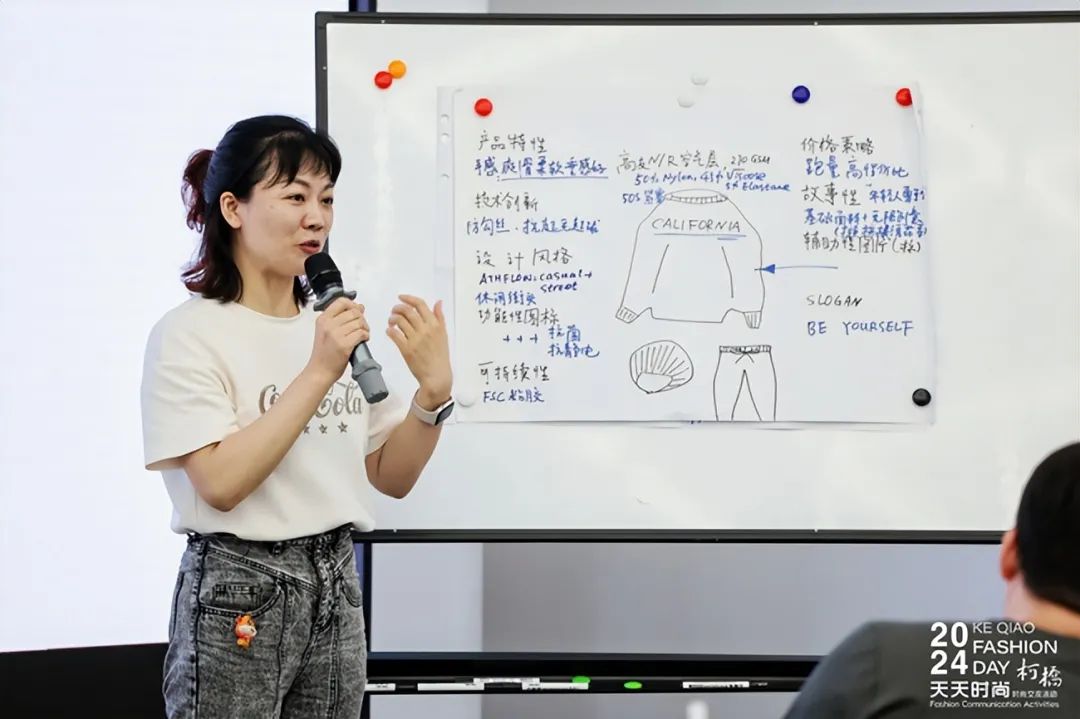 产品特性
手感爽滑柔软垂感好
技术创新
防勾丝、抗起毛起球
设计风格
ATHFLOW: casual +
street
休闲街头
功能性图标
+++ 抗菌
抗静电
可持续性
FSC
高支N/R空气层, 270 GSM
50% Nylon, 45% Viscose
5% Elastane
50S
CALIFORNIA
价格策略
跑量 高性价比
故事性
基础面料+无限创意
辅助性图片
SLOGAN
BE YOURSELF
Coca-Cola
2024
KE QIAO
FASHION
DAY 柯桥
天天时尚 时尚交流活动
Fashion Communication Activities